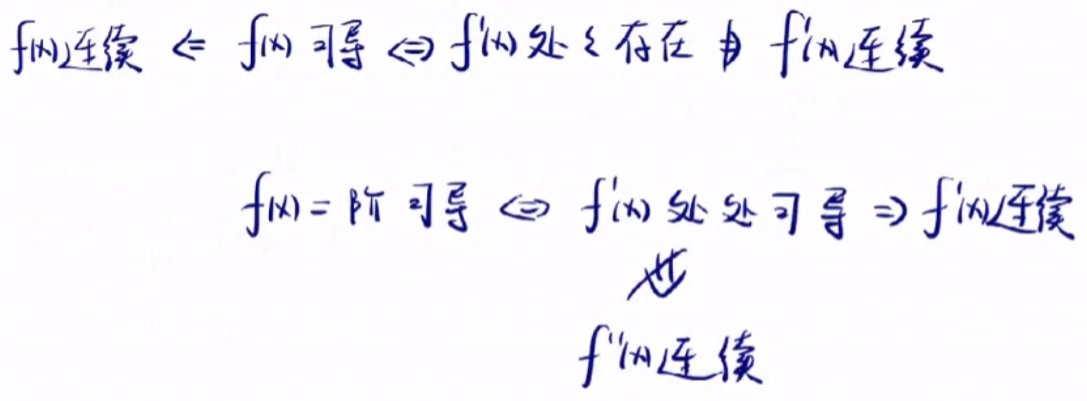 f(x)连续 ⇐ f(x) 可导 ⇔ f'(x) 处处存在 ⇏ f'(x)连续
f(x)二阶可导 ⇔ f'(x) 处处可导 ⇒ f'(x)连续
⇓̸
f''(x)连续